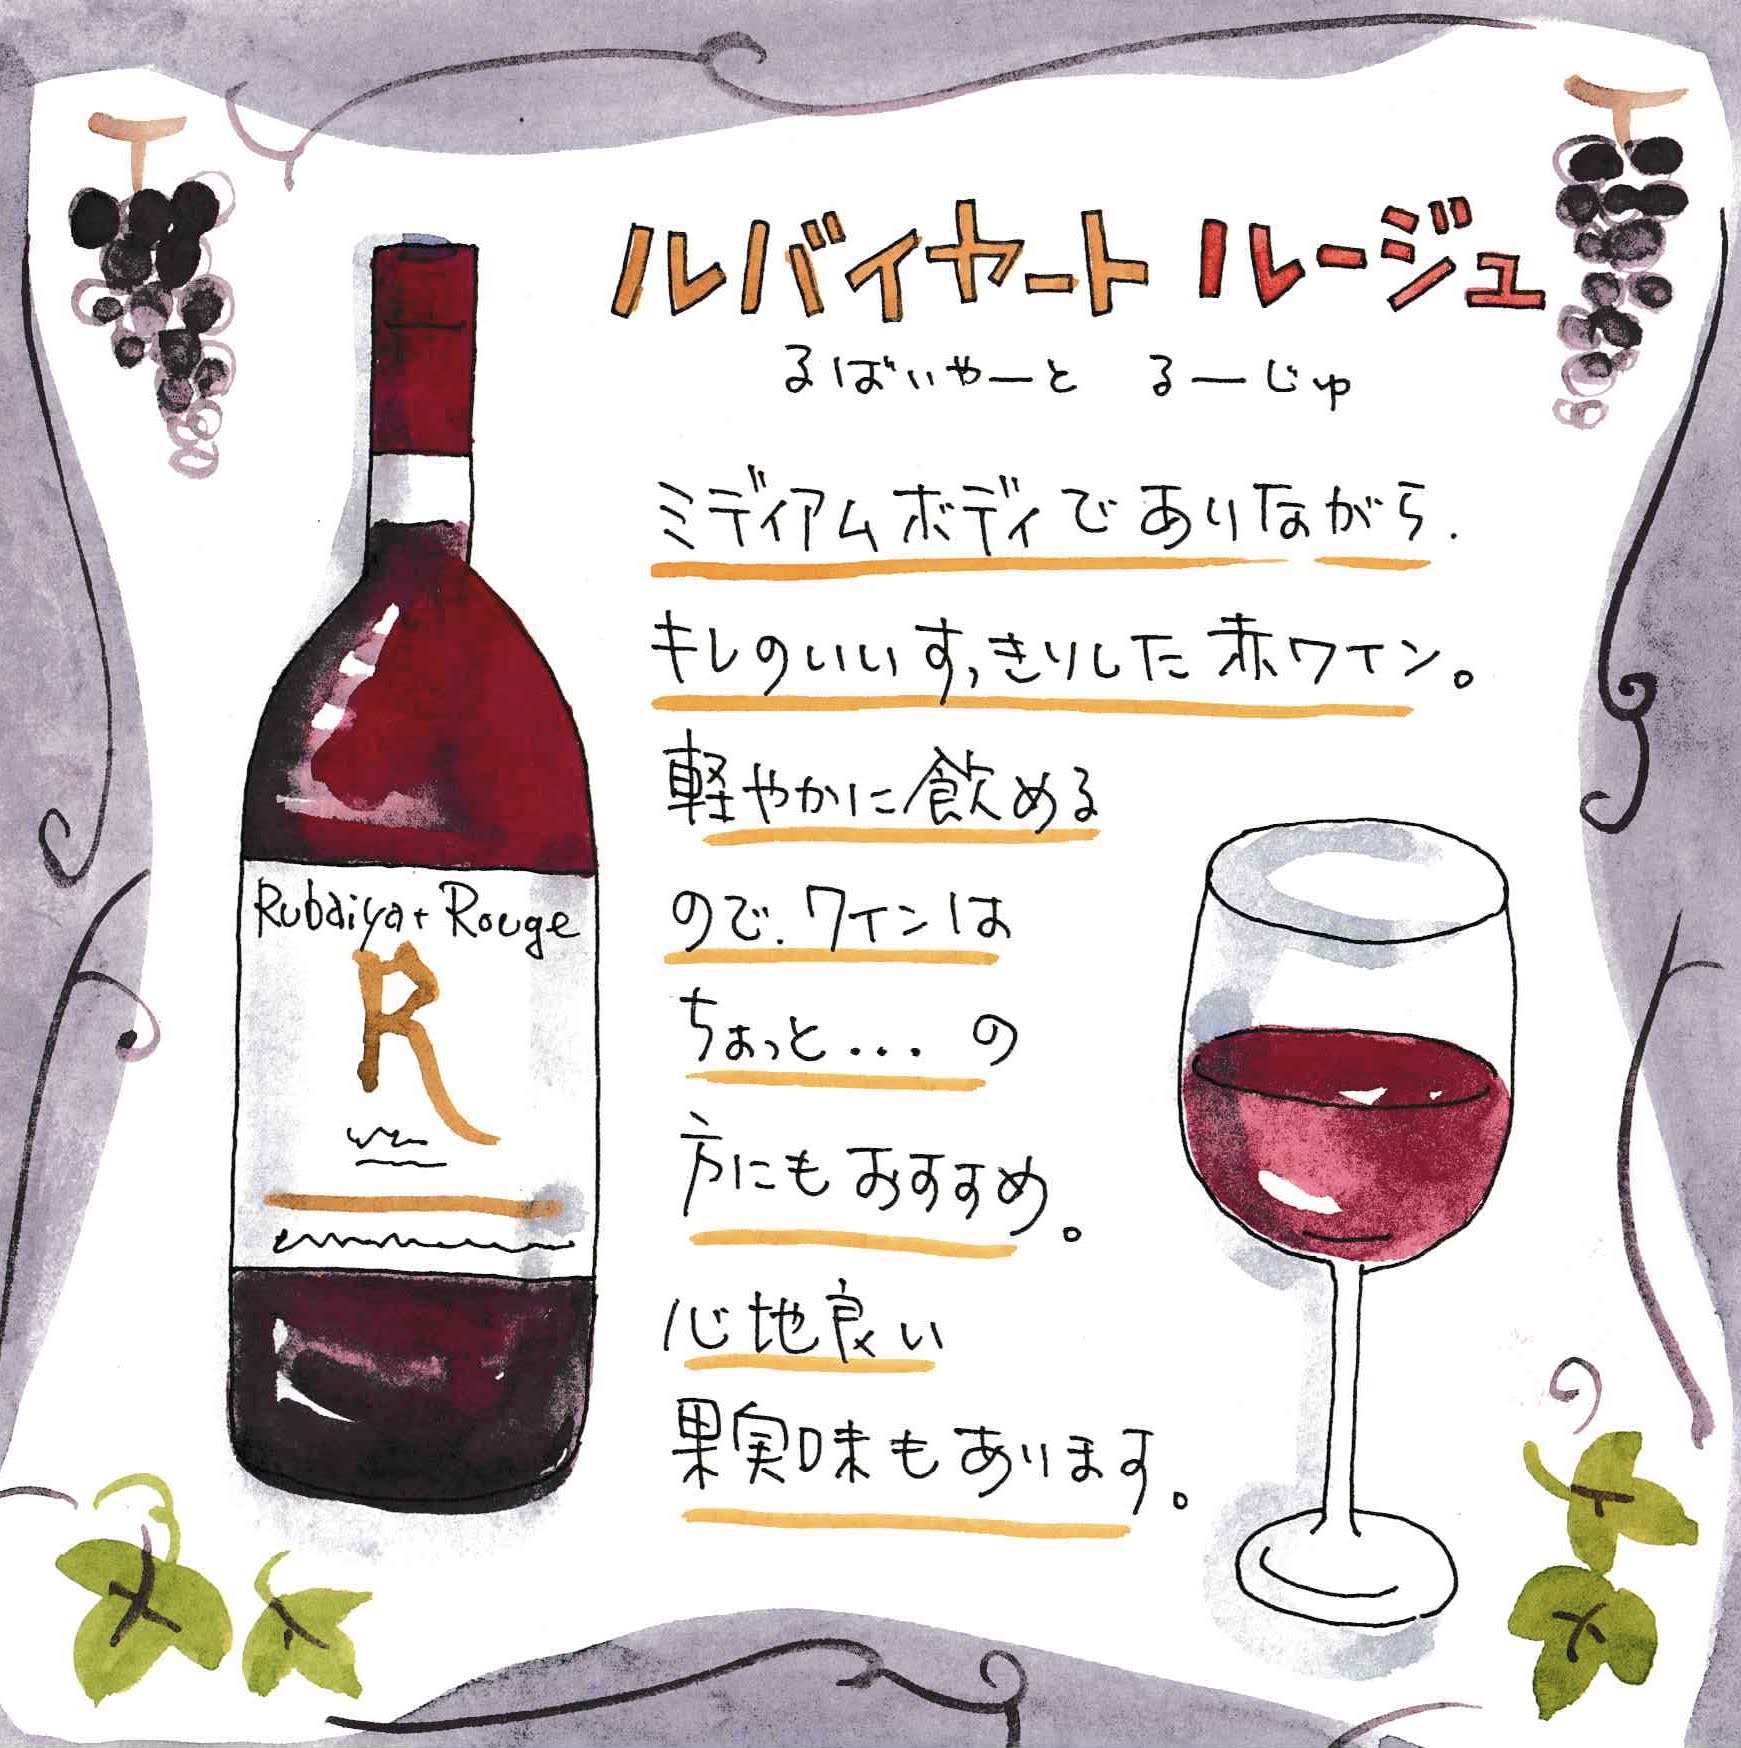 ルバイヤート ルージュ
るばいやーと るーじゅ
ミディアムボディでありながら、
キレのいいすっきりした赤ワイン。
軽やかに飲める
ので、ワインは
ちょっと...の
方にもおすすめ。
心地良い
果実味もあります。
Rubaiyat Rouge
R